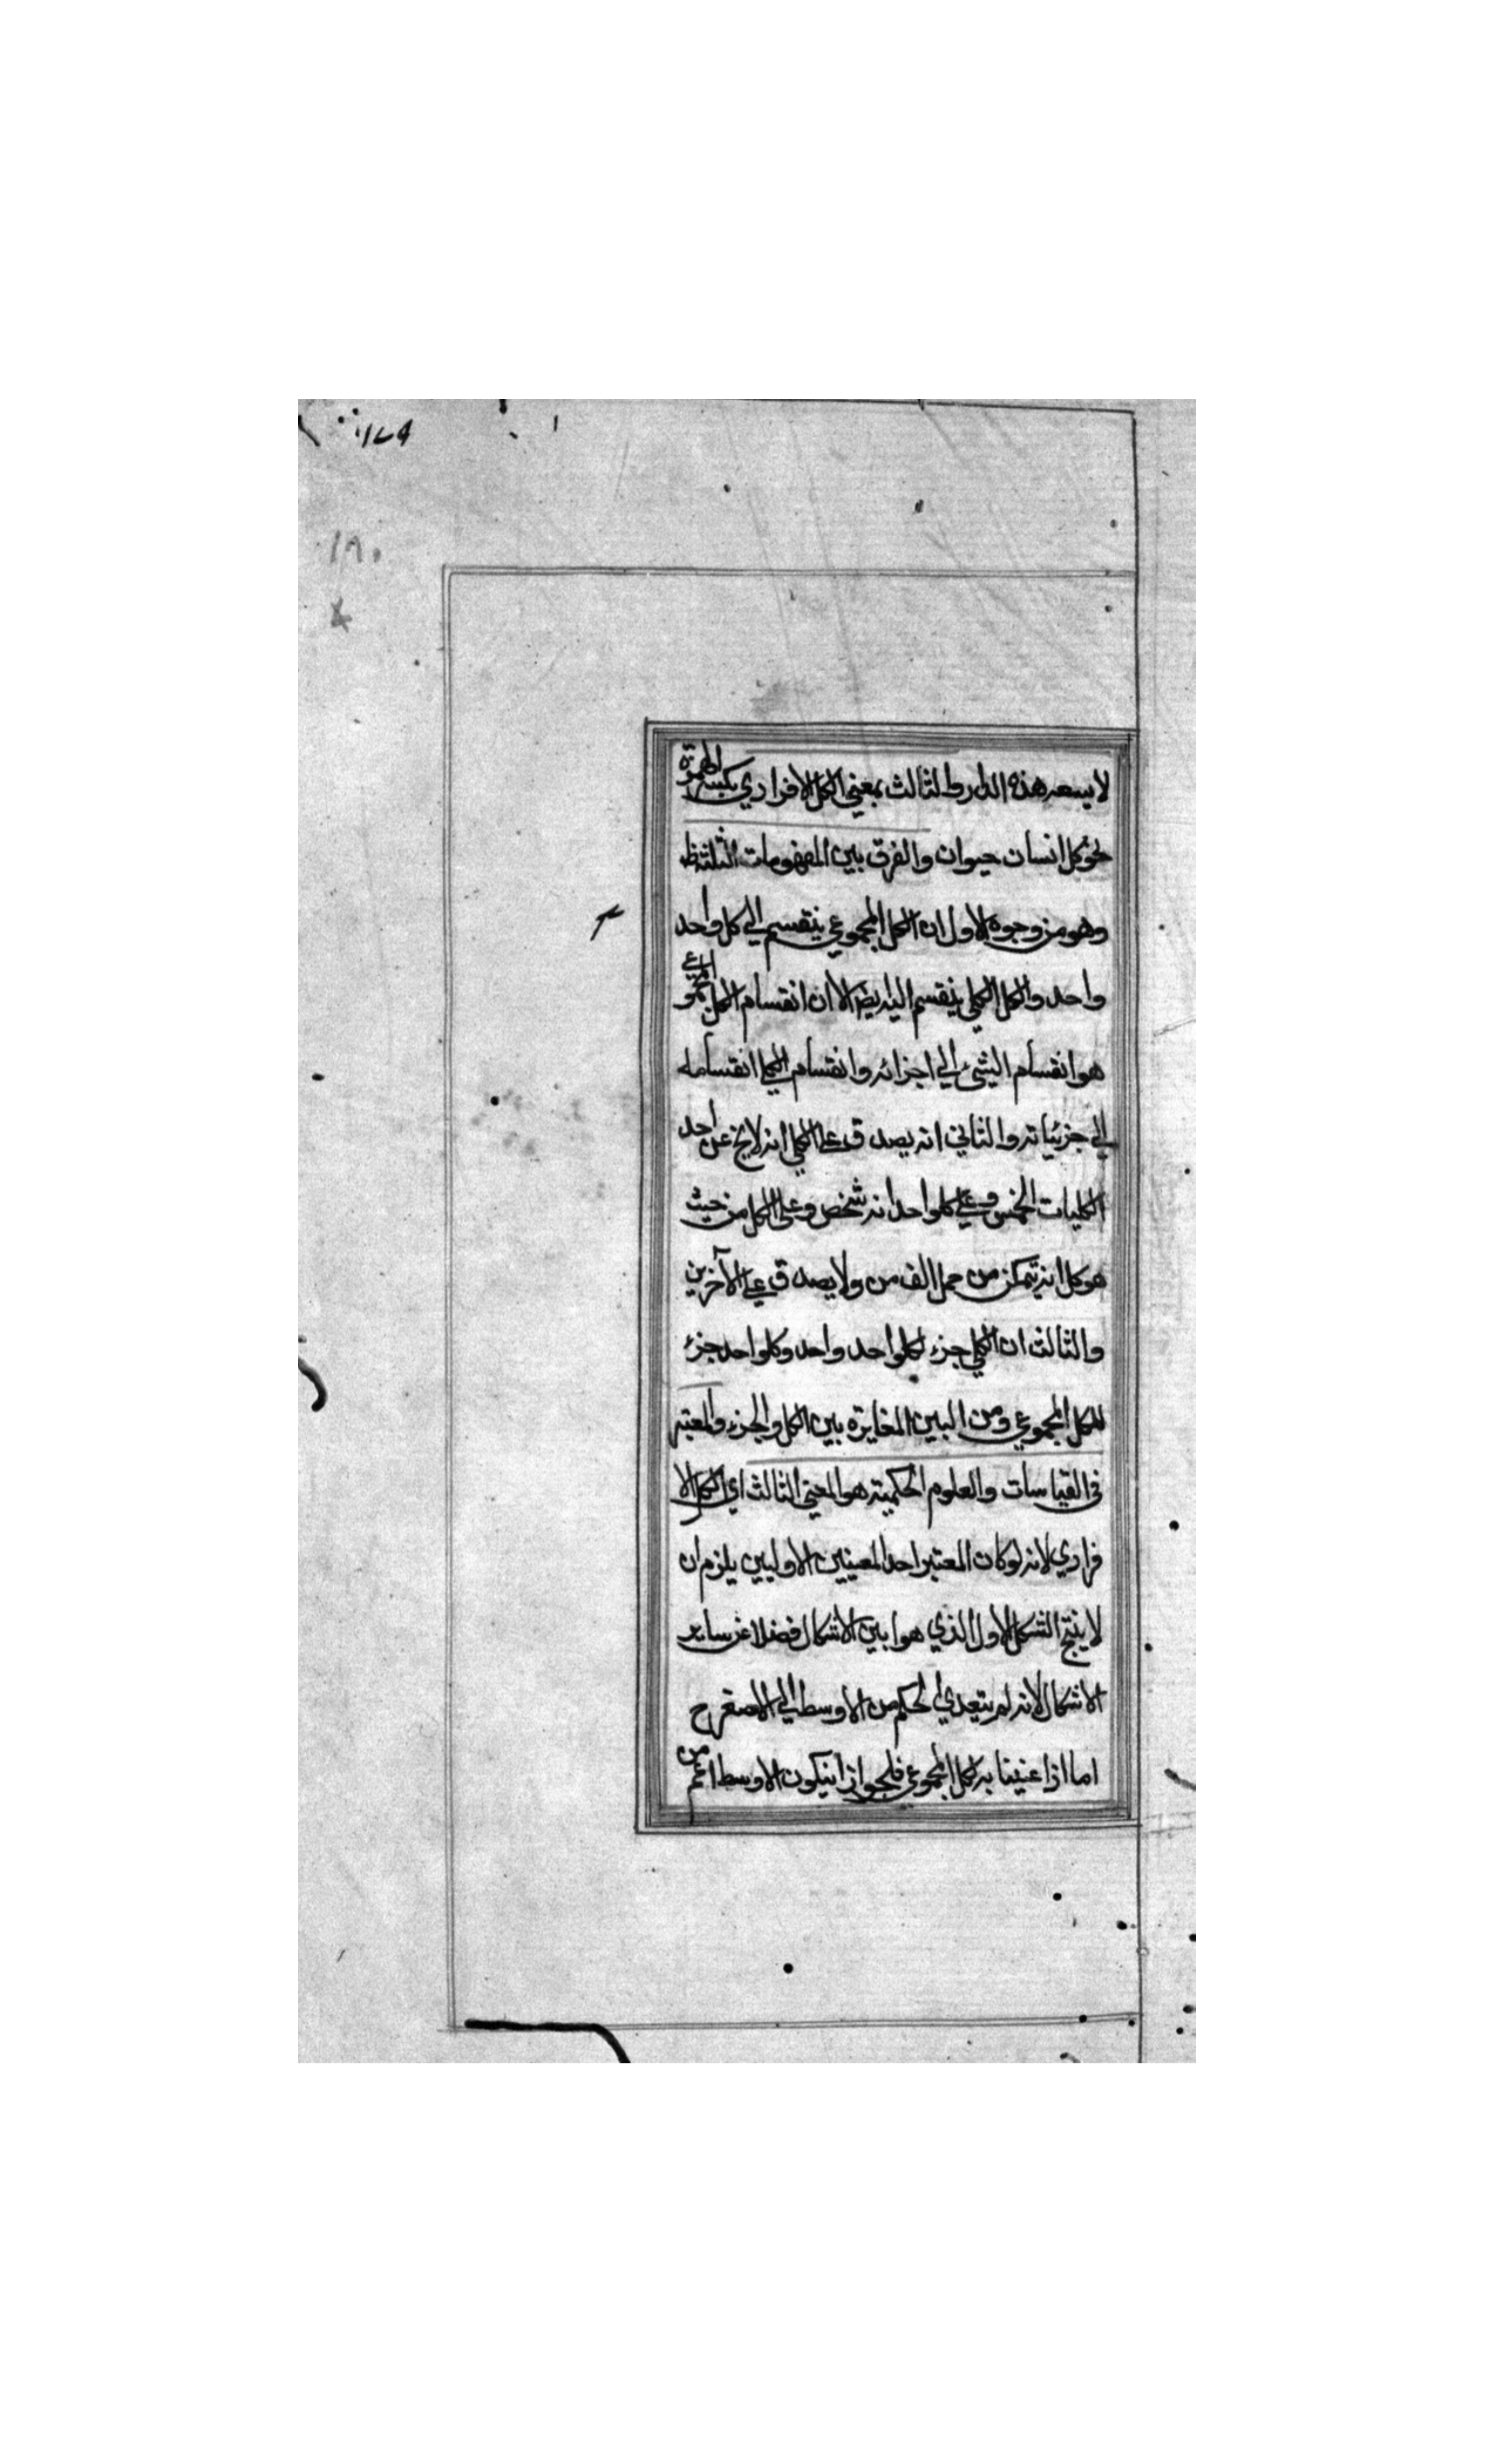 ١٧٩
١٨٠
لا يسعه هذه الدار والثالث بمعنى الكل الافرادي بكسر الهمزة
نحو كل انسان حيوان والفرق بين المفهومات الثلثة ظ
وهو من وجوه الاول ان الكل المجموعي ينقسم الى كل واحد
واحد والكل الكلي ينقسم اليه ايضا الا ان انقسام الكل المجموعي
هو انقسام الشئ الى اجزائه وانقسام الكلي انقسامه
الى جزئياته والثاني انه يصدق على الكلي انه لا يخ عن احد
الكليات الخمس وعلى كلواحد انه شخص وعلى الكل من حيث
هو كل انه يتمكن من حمل الف من ولا يصدق على الآخرين
والثالث ان الكلي جزء لكلواحد واحد وكلواحد جزء
للكل المجموعي ومن البين المغايرة بين الكل والجزء والمعتبر
في القياسات والعلوم الحكمية هو المعنى الثالث اي الكل الا
فرادي لانه لو كان المعتبر احد المعنيين الاوليين يلزم ان
لا ينتج الشكل الاول الذي هو ابين الاشكال فضلا عن ساير
الاشكال لانه لم يتعدي الحكم من الاوسط الى الاصغر ح
اما اذا عنينا به الكل المجموعي فلجواز انيكون الاوسط اعم من